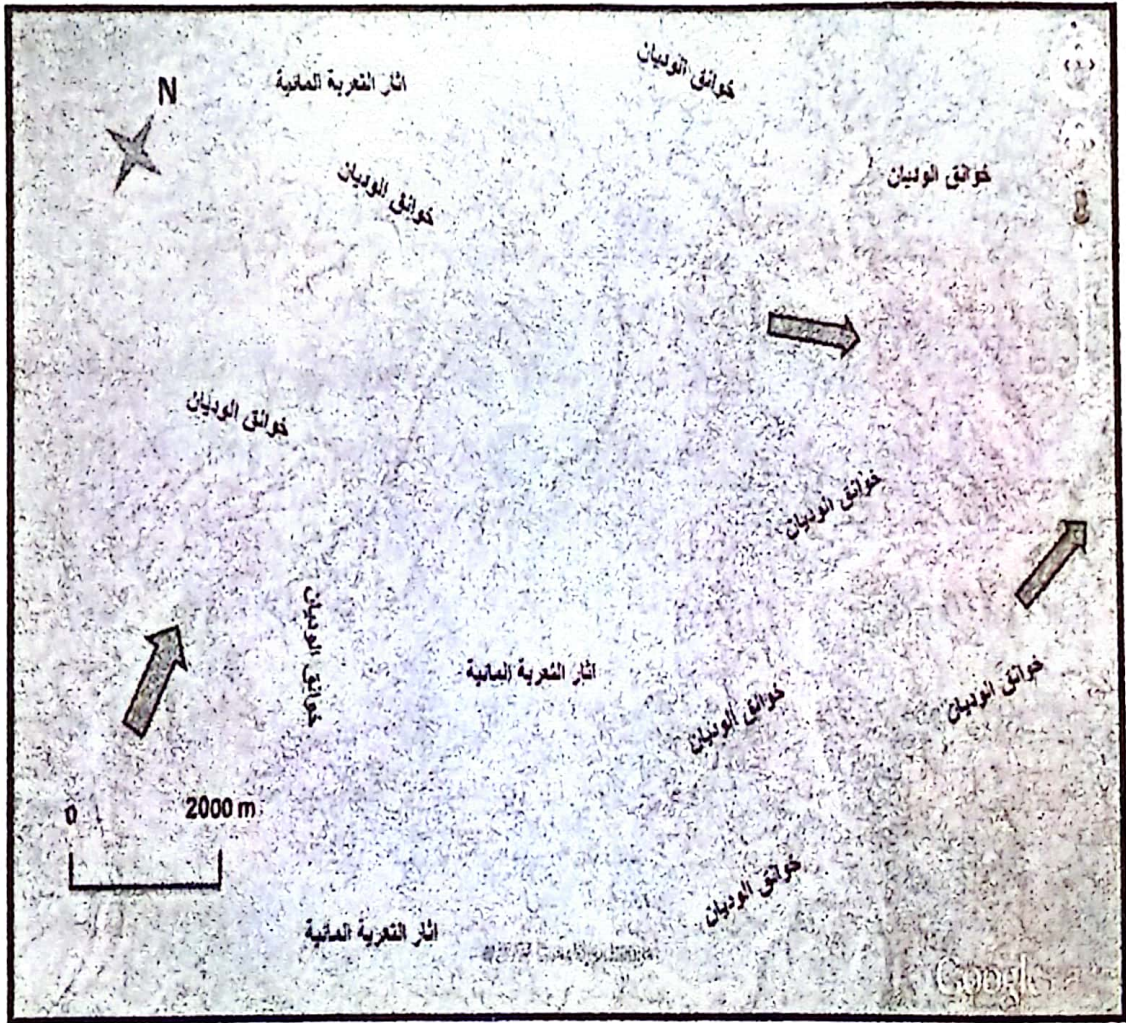 خوانق الوديان
اثار التعرية المائية
N
خوانق الوديان
خوانق الوديان
خوانق الوديان
خوانق الوديان
خوانق الوديان
خوانق الوديان
اثار التعرية المائية
خوانق الوديان
0 2000 m
خوانق الوديان
اثار التعرية المائية
Google